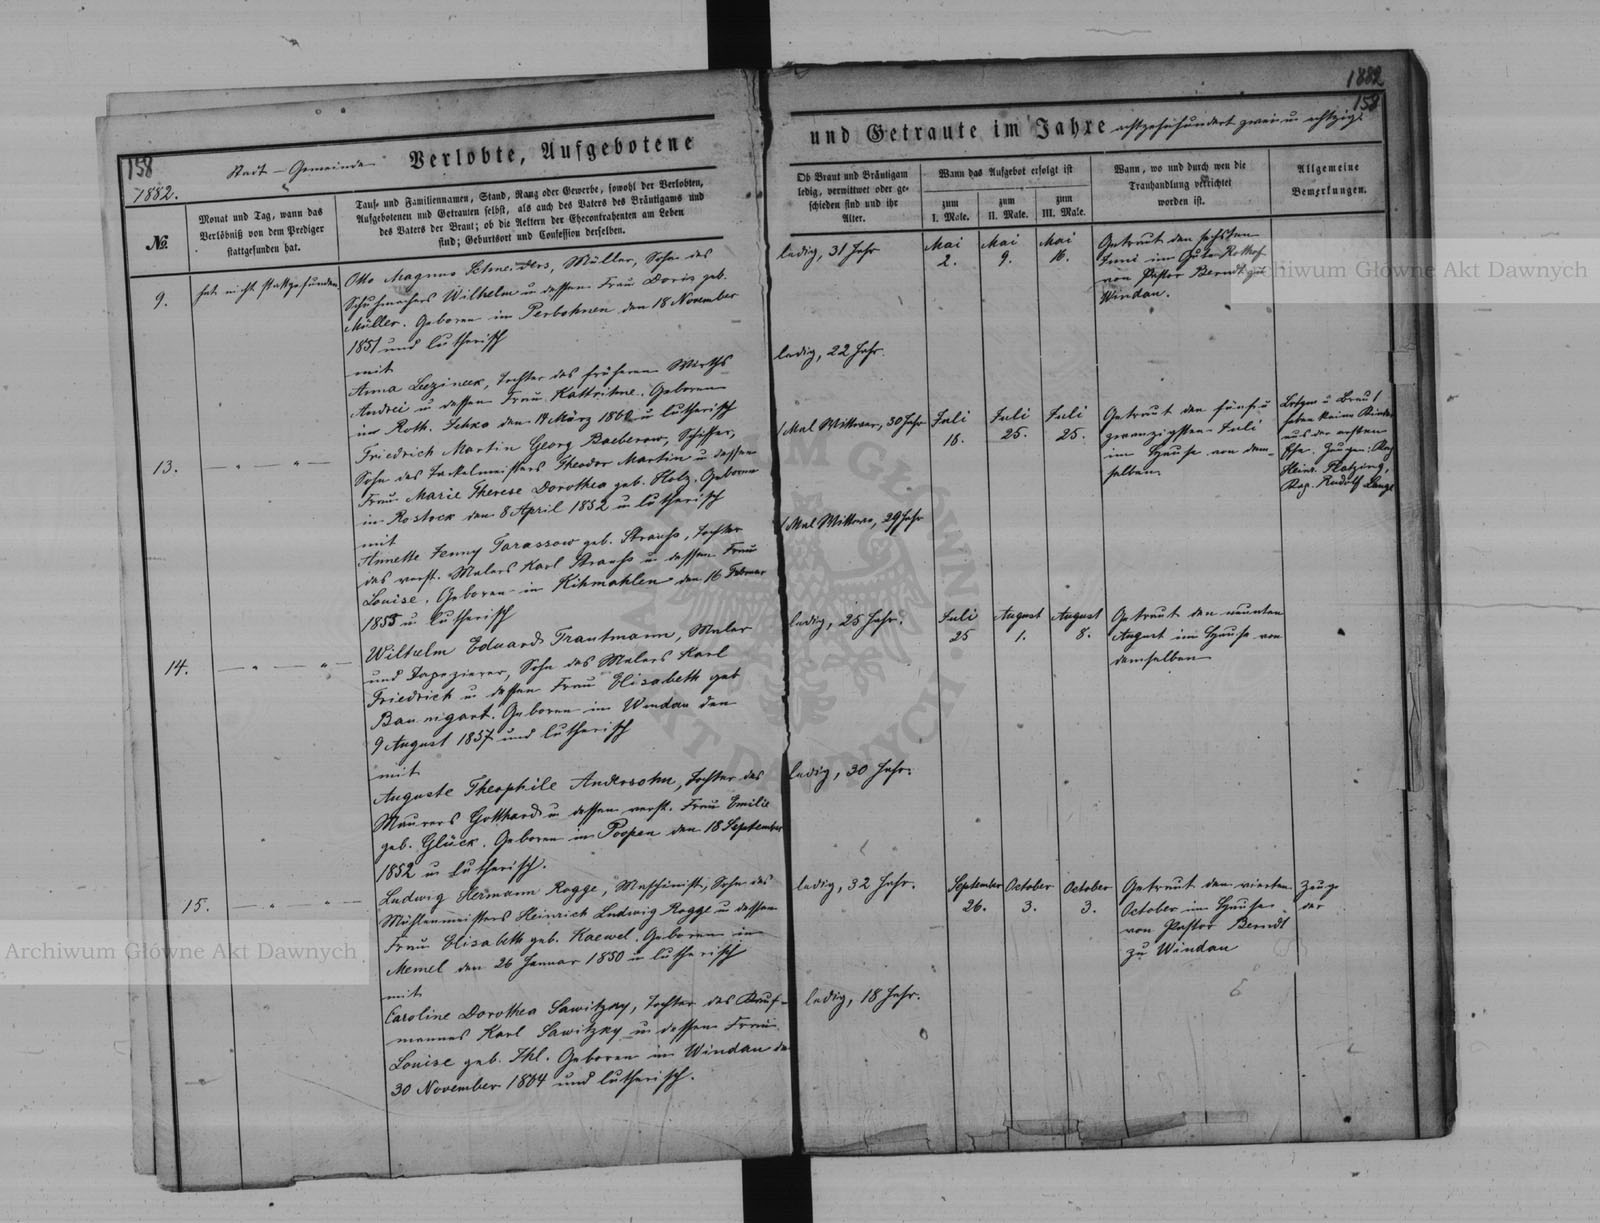 158
1882.
Stadt-Gemeinde
Verlobte, Aufgebotene
№
Monat und Tag, wann das
Verlöbniß von dem Prediger
stattgefunden hat.
Tauf- und Familiennamen, Stand, Rang oder Gewerbe, sowohl der Verlobten,
Aufgebotenen und Getrauten selbst, als auch des Vaters des Bräutigams und
des Vaters der Braut; ob die Aeltern der Ehecontrahenten am Leben
sind; Geburtsort und Confession derselben.
9.
hat nicht stattgefunden
Otto Magnus Schneiders, Müller, Sohn des
Schuhmachers Wilhelm u dessen Frau Doris geb.
Müller. Geboren in Perbohnen den 18 November
1851 und lutherisch
mit
Anna Leezineek, Tochter des früheren Wirths
Andrei u dessen Frau Kattrihne. Geboren
im Roth. Sehxo den 14 März 1860 u lutherisch
13.
— " — " —
Friedrich Martin Georg Baeberow, Schiffer,
Sohn des Takelmeisters Theodor Martin u dessen
Frau Marie Therese Dorothea geb. Holz. Geboren
in Rostock den 8 April 1852 u lutherisch
mit
Annette Jenny Tarassow geb. Strauss, Tochter
des verst. Malers Karl Strauss u dessen Frau
Louise. Geboren in Kihmahlen den 16 Februar
1853 u lutherisch
14.
— " — " —
Wilhelm Eduard Trautmann, Maler
und Tapezierer, Sohn des Malers Karl
Friedrich u dessen Frau Elisabeth geb
Baumgart. Geboren in Windau den
9 August 1857 und lutherisch
mit
Auguste Theophile Andersohn, Tochter des
Maurers Gotthard u dessen verst. Frau Emilie
geb. Glück. Geboren in Poopen den 18 September
1852 u lutherisch.
15.
— " — " —
Ludwig Hermann Rogge, Maschinist, Sohn des
Mühlenmeisters Heinrich Ludwig Rogge u dessen
Frau Elisabeth geb. Kaewel. Geboren in
Memel den 26 Januar 1850 u lutherisch
mit
Caroline Dorothea Sawitzky, Tochter des Kauf-
mannes Karl Sawitzky u dessen Frau
Louise geb. Ihl. Geboren in Windau den
30 November 1864 und lutherisch.
1882
158
und Getraute im Jahre achtzehnhundert zwei u achtzig.
Ob Braut und Bräutigam
ledig, verwittwet oder ge-
schieden sind und ihr
Alter.
Wann das Aufgebot erfolgt ist
zum
I. Male.
zum
II. Male.
zum
III. Male.
Wann, wo und durch wen die
Trauhandlung verrichtet
worden ist.
Allgemeine
Bemerkungen.
ledig, 31 Jahr
Mai
2.
Mai
9.
Mai
16.
Getraut den sechsten
Juni im Gute Rothof
von Pastor Berndt zu
Windau.
ledig, 22 Jahr.
1 Mal Wittwer, 30 Jahr
Juli
18.
Juli
25.
Juli
25.
Getraut den fünf u
zwanzigsten Juli
im Hause von dem-
selben
Brtgm u Braut
haben keine Kinder
aus der ersten
Ehe. Zeugen:
Heinr. Platzing,
Kap. Rudolf Lange
1 Mal Wittwe, 29 Jahr
ledig, 25 Jahr.
Juli
25
August
1.
August
8.
Getraut den neunten
August im Hause von
demselben
ledig, 30 Jahr.
ledig, 32 Jahr.
September
26.
October
3.
October
3.
Getraut den vierten
October im Hause
von Pastor Berndt
zu Windau
ledig, 18 Jahr.
Archiwum Główne Akt Dawnych
Archiwum Główne Akt Dawnych